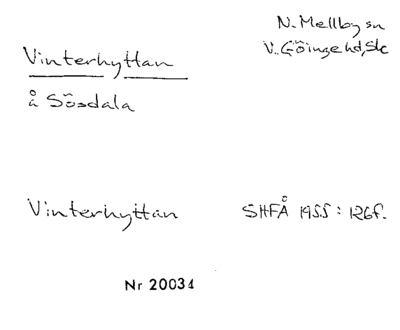 N. Mellby sn
V. Göinge hd, Sk
Vinterhyttan
å Sösdala
Vinterhyttan SHFÅ 1955: 126f.
Nr 20034